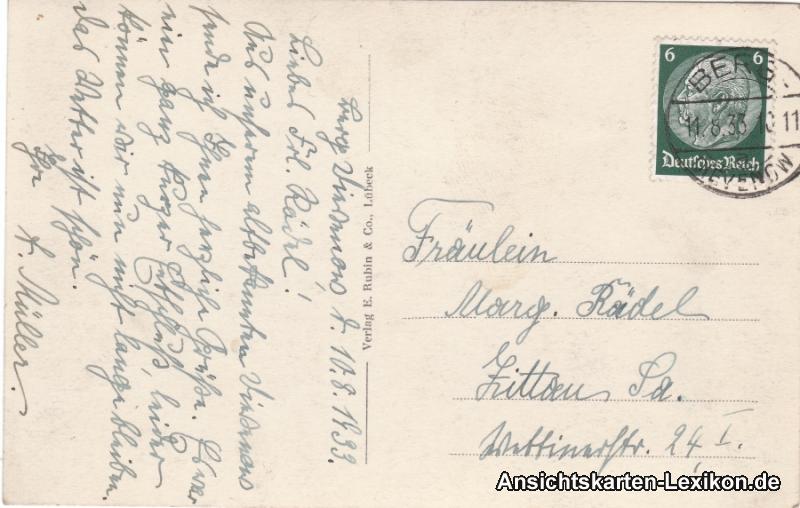 Berg Dievenow d. 10.8.1933.
Liebes Frl. Rädel!
Aus unserem altbekannten Dievenow
sende ich Ihnen herzliche Grüße. Es war
ein ganz kurzer Entschluß leider
können wir nun nicht lange bleiben.
Das Wetter ist schön.
Ihre
A. Müller.
Verlag E. Rubin & Co., Lübeck
6 6
Deutsches Reich
BERG-
11.8.33. 10 11
DIEVENOW
Fräulein
Marg. Rädel
Zittau Sa.
Wettinerstr. 24 I.
Ansichtskarten-Lexikon.de